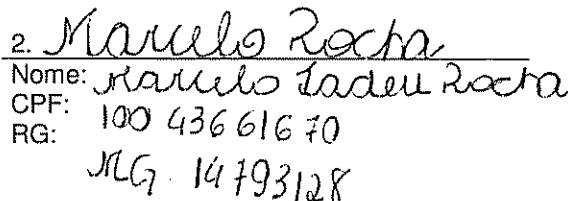 2. Marcelo Rocha
Nome: Marcelo Tadeu Rocha
CPF: 100 436 616 70
RG:
MG. 14793128